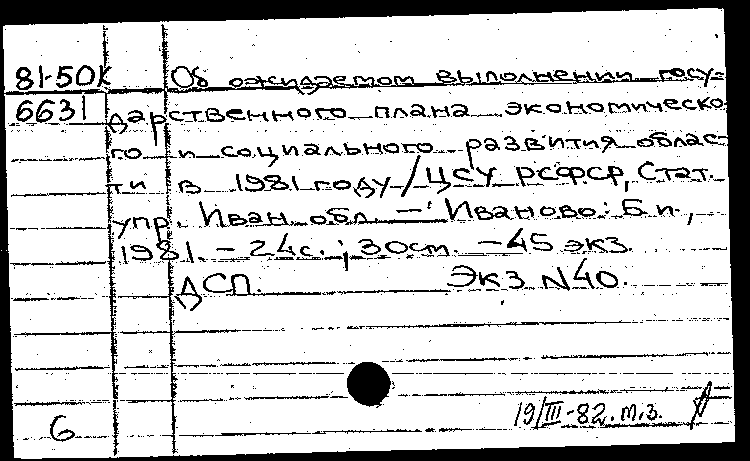 81-50К Об ожидаемом выполнении госу-
6631 дарственного плана экономическо
го и социального развития облас-
ти в 1981 году / ЦСУ РСФСР, Стат.
упр. Иван. обл. — Иваново: Б и.,
1981. – 24с.; 30см. – 45 экз.
ДСП. Экз N40.
19/III-82. т.з.
6